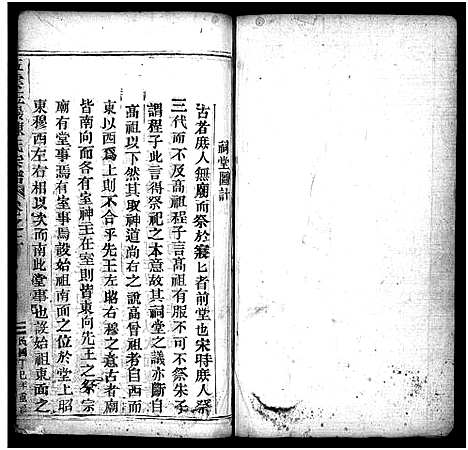 祠堂圖計
古者庶人無廟而祭於寢寢者前堂也宋時庶人祭
三代而不及高祖程子言髙祖有服不可不祭朱子
謂程子此言得祭祀之本意故其祠堂之議亦斷自
高祖以下然其取神道尚右之說高曾祖考自西而
東以西爲上則不合乎先王左昭右穆之意古者廟
皆南向而各有室神主在室則皆東向先王之祭宗
廟有堂事焉有室事焉設始祖南面之位於堂上昭
東穆西左右相以次而南此堂事也設始祖東面之
民國丁巳年重